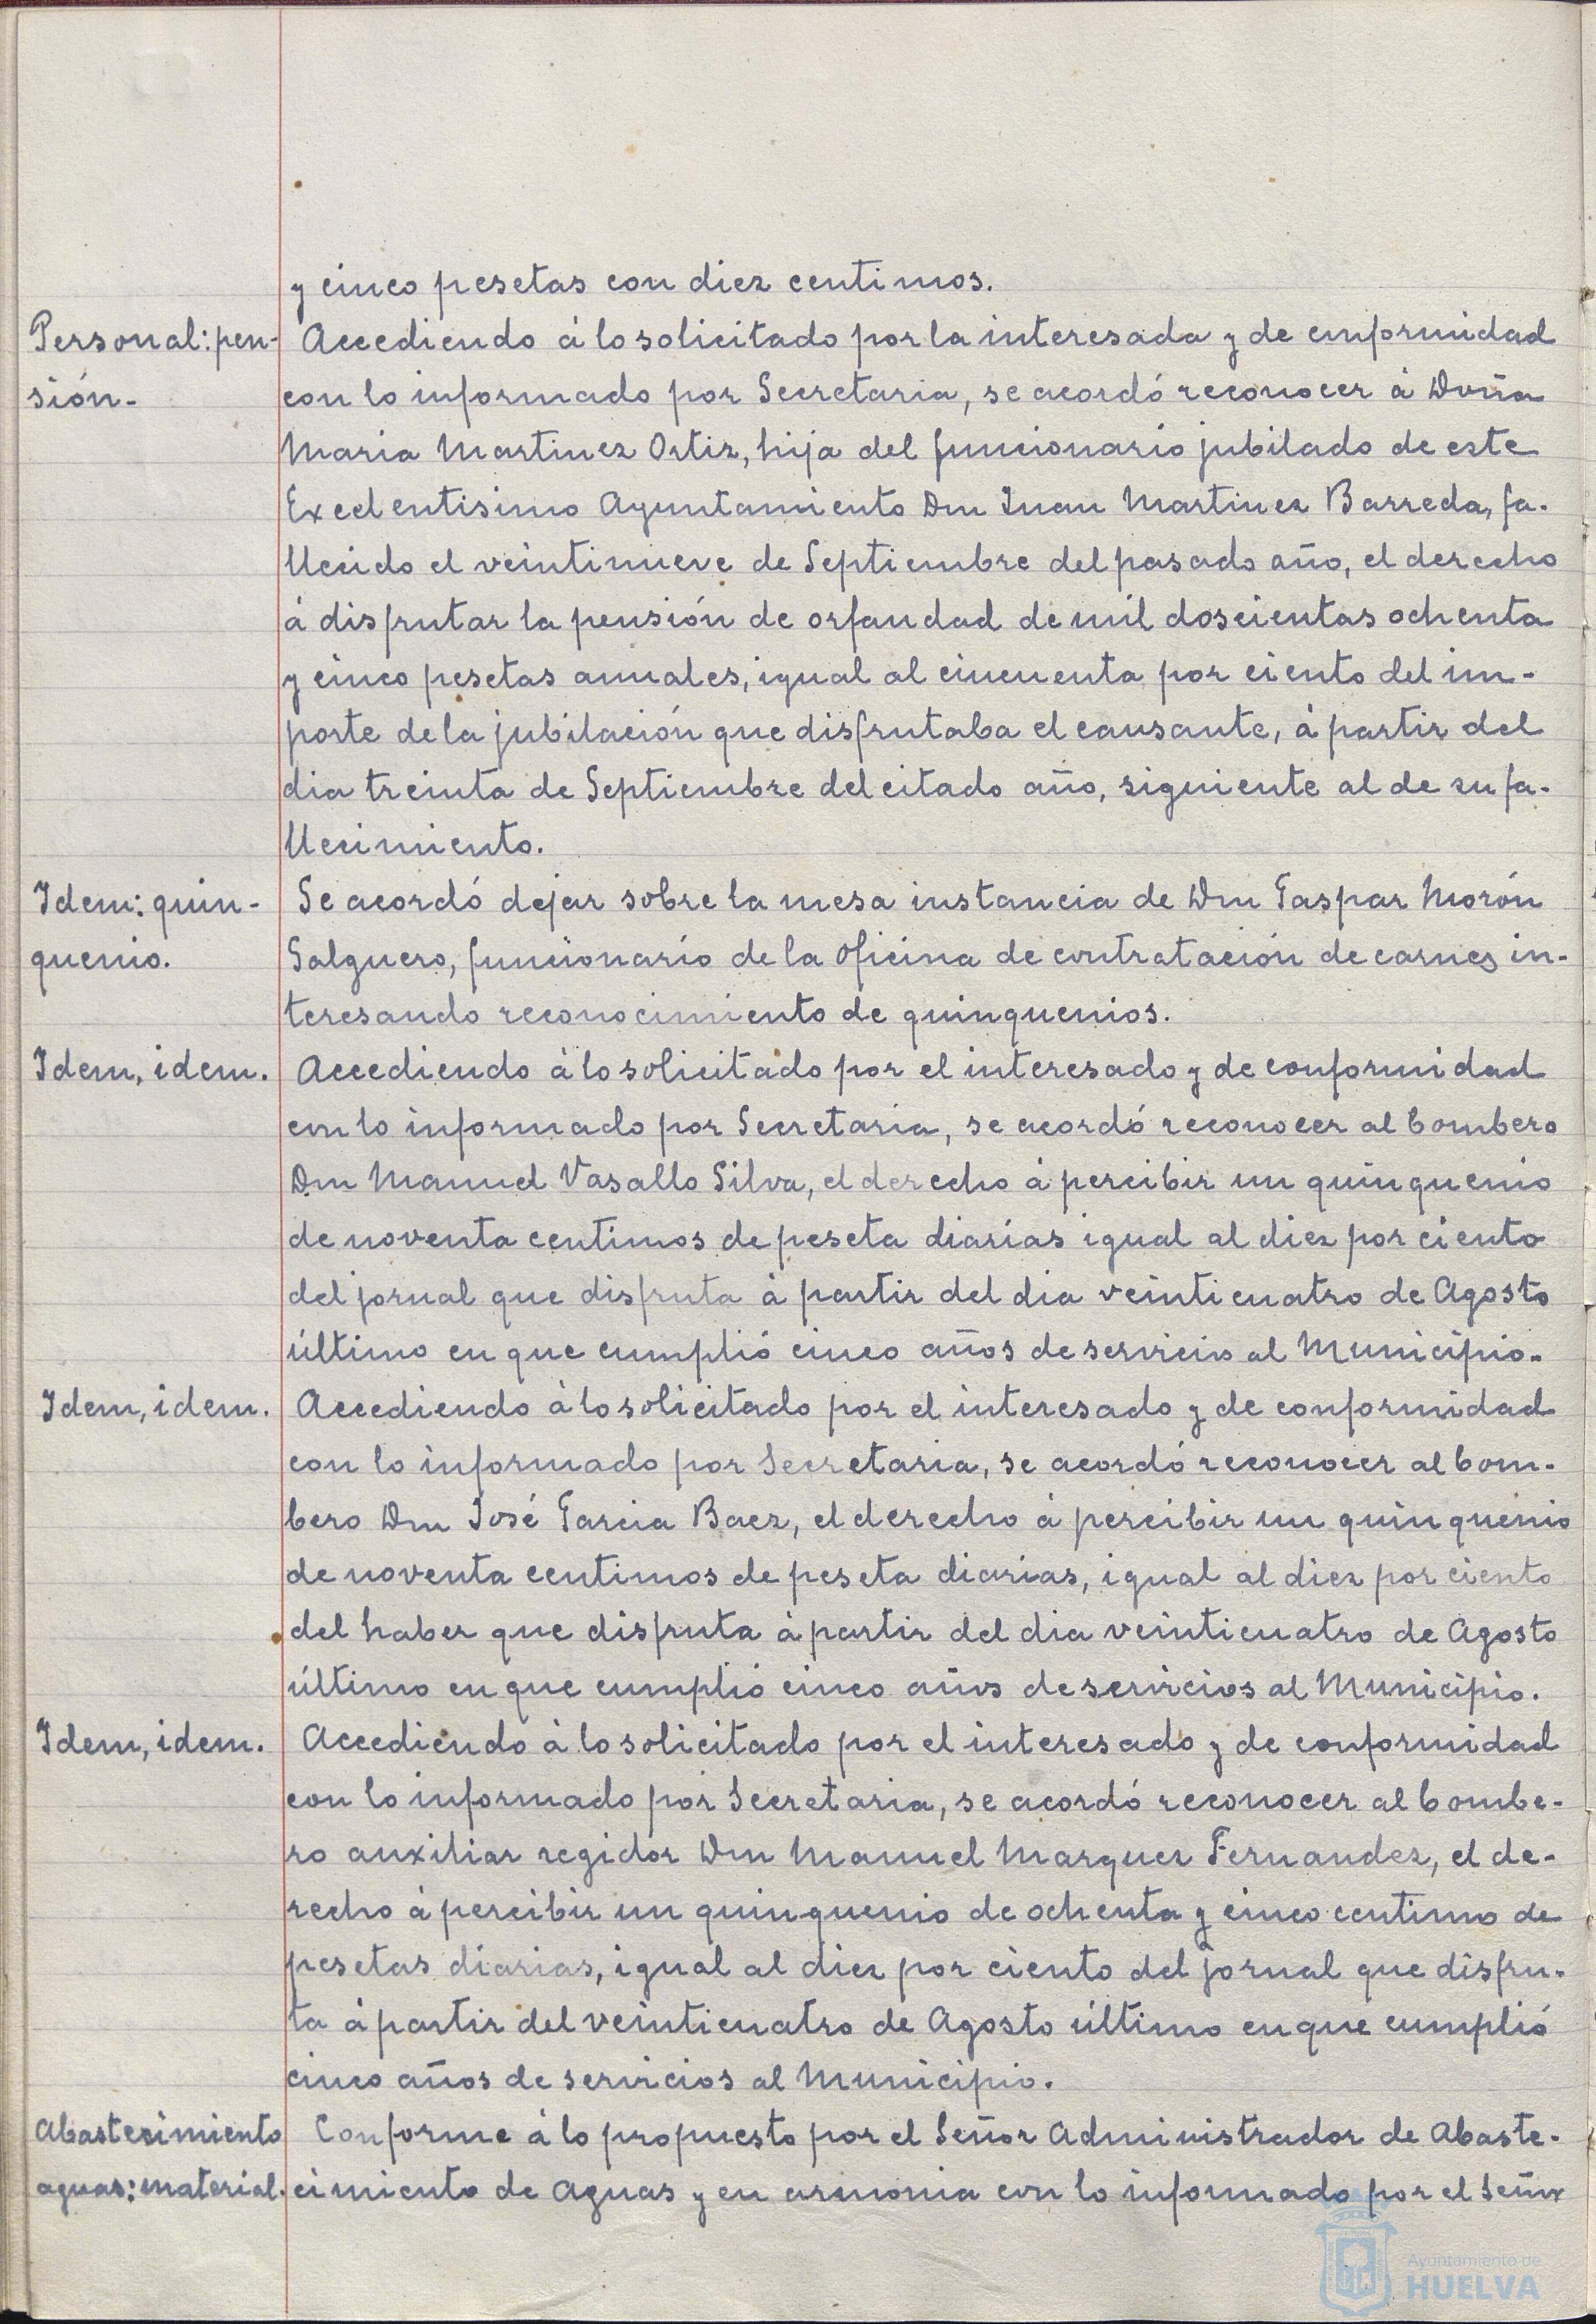 y cinco pesetas con diez centimos.
Personal: pen- Accediendo á lo solicitado por la interesada y de conformidad
sión- con lo informado por Secretaria, se acordó reconocer á Doña
Maria Martinez Ortiz, hija del funcionario jubilado de este
Excelentisimo Ayuntamiento Don Juan Martinez Barreda, fa-
llecido el veintinueve de Septiembre del pasado año, el derecho
á disfrutar la pensión de orfandad de mil doscientas ochenta
y cinco pesetas anuales, igual al cincuenta por ciento del im-
porte de la jubilación que disfrutaba el causante, á partir del
dia treinta de Septiembre del citado año, siguiente al de su fa-
llecimiento.
Idem: quin- Se acordó dejar sobre la mesa instancia de Don Gaspar Morón
quenio. Salguero, funcionario de la oficina de contratación de carnes in-
teresando reconocimiento de quinquenios.
Idem, idem. Accediendo á lo solicitado por el interesado y de conformidad
con lo informado por Secretaria, se acordó reconocer al bombero
Don Manuel Vasallo Silva, el derecho á percibir un quinquenio
de noventa centimos de peseta diarias igual al diez por ciento
del jornal que disfruta á partir del dia veinticuatro de Agosto
último en que cumplió cinco años de servicio al Municipio.
Idem, idem. Accediendo á lo solicitado por el interesado y de conformidad
con lo informado por Secretaria, se acordó reconocer al bom-
bero Don José Garcia Baez, el derecho á percibir un quinquenio
de noventa centimos de peseta diarias, igual al diez por ciento
del haber que disfruta á partir del dia veinticuatro de Agosto
último en que cumplió cinco años de servicios al Municipio.
Idem, idem. Accediendo á lo solicitado por el interesado y de conformidad
con lo informado por Secretaria, se acordó reconocer al bombe-
ro auxiliar regidor Don Manuel Marquez Fernandez, el de-
recho á percibir un quinquenio de ochenta y cinco centimo de
pesetas diarias, igual al diez por ciento del jornal que disfru-
ta á partir del veinticuatro de Agosto último en que cumplió
cinco años de servicios al Municipio.
Abastecimiento Conforme á lo propuesto por el Señor Administrador de Abaste-
aguas: material. cimiento de Aguas y en armonia con lo informado por el Señor
Ayuntamiento de
HUELVA